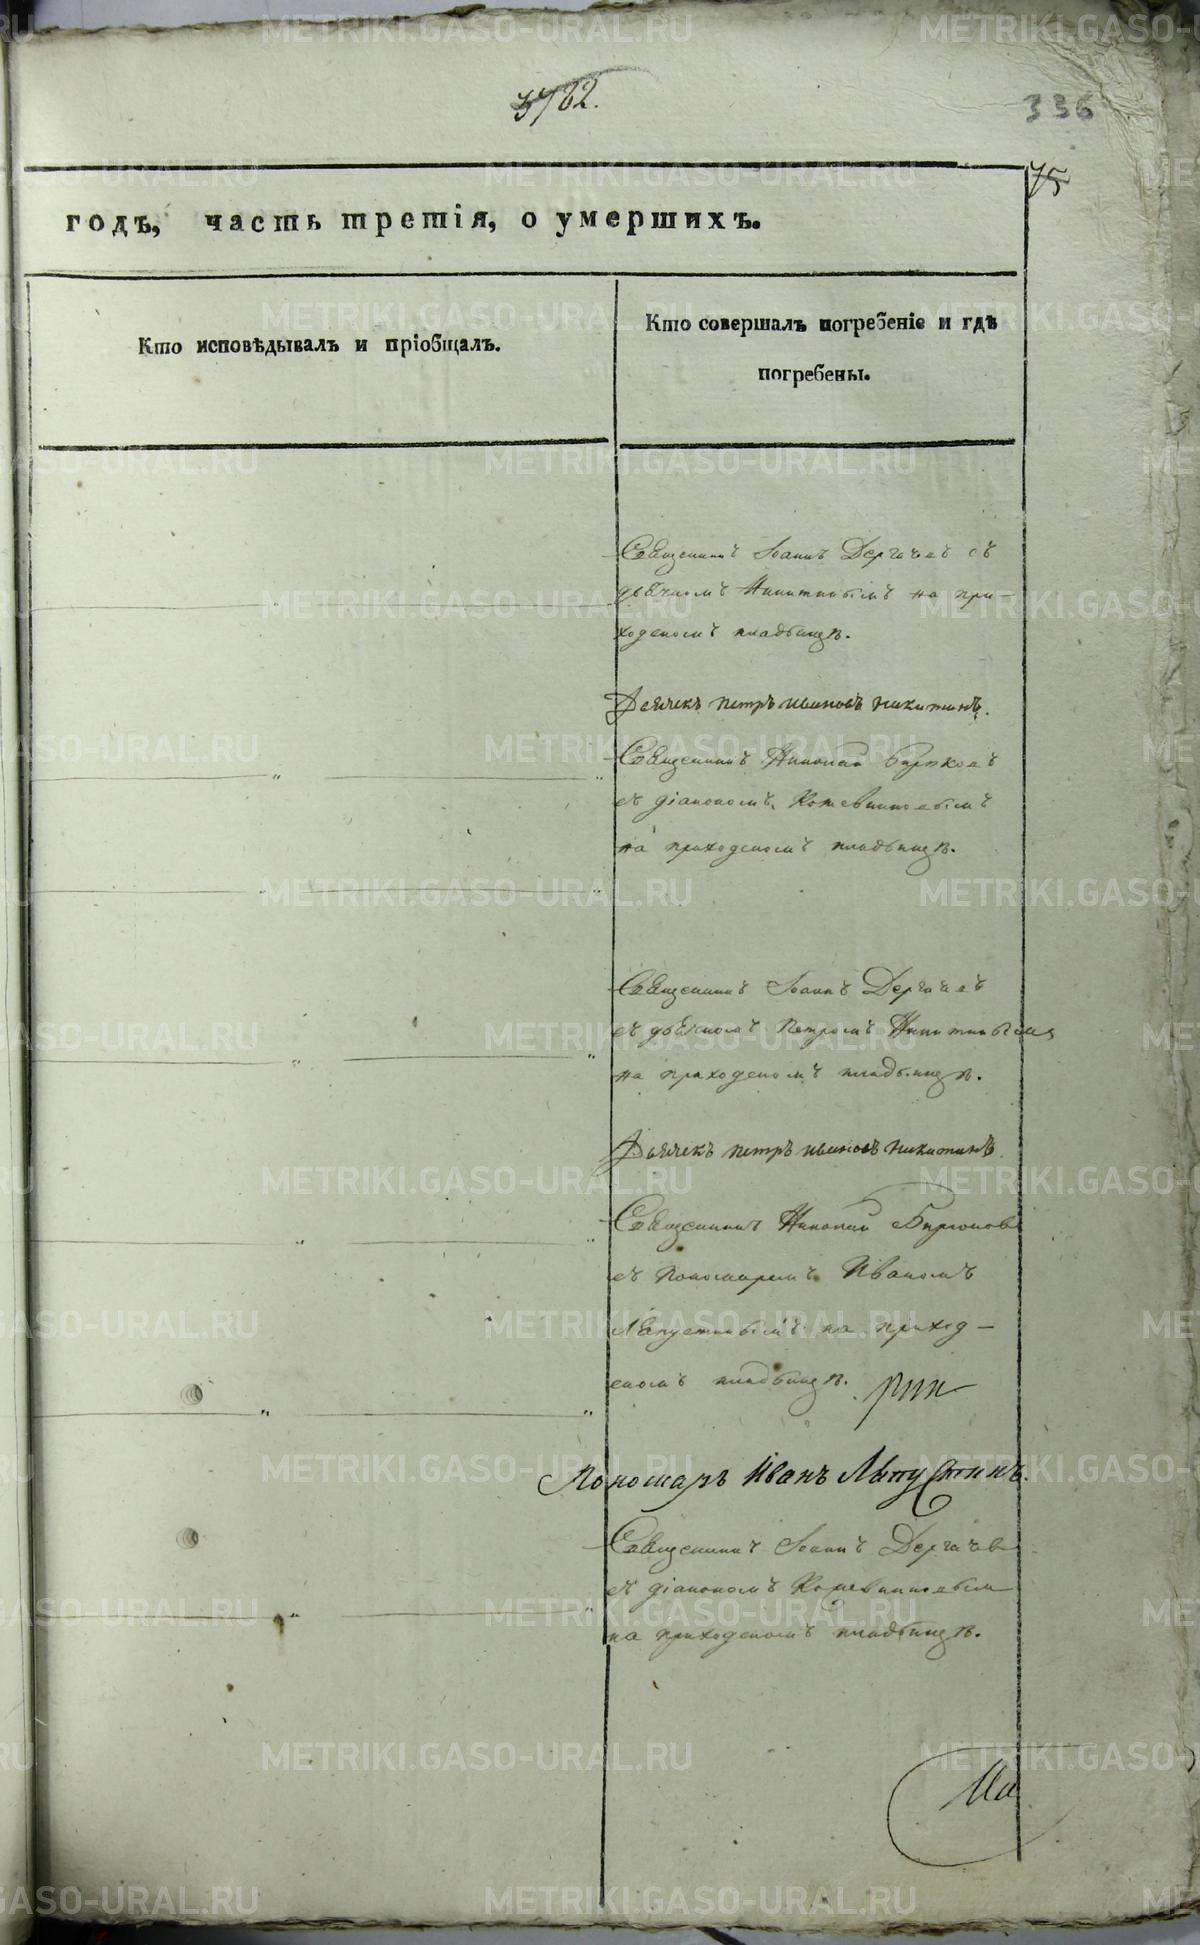 3782.
336
75
годъ, часть третія, о умершихъ.
Кто исповѣдывалъ и пріобщалъ.
Кто совершалъ погребеніе и гдѣ
погребены.
Священникъ Іоаннъ Дергачевъ съ
дьячкомъ Никитинымъ на при-
ходскомъ кладбищѣ.
Дьячекъ петръ ивановъ никитинъ.
Священникъ Николай Бирюковъ
съ діакономъ Кожевниковымъ
на приходскомъ кладбищѣ.
Священникъ Іоаннъ Дергачевъ
съ дьячкомъ Петромъ Никитинымъ
на приходскомъ кладбищѣ.
Дьячекъ петръ ивановъ никитинъ.
Священникъ Николай Бирюковъ
съ пономаремъ Иваномъ
Лепустинымъ на приход-
скомъ кладбищѣ.
Пономарь Иванъ Лепустинъ.
Священникъ Іоаннъ Дергачевъ
съ діакономъ Кожевниковым
на приходскомъ кладбищѣ.
METRIKI.GASO-URAL.RU